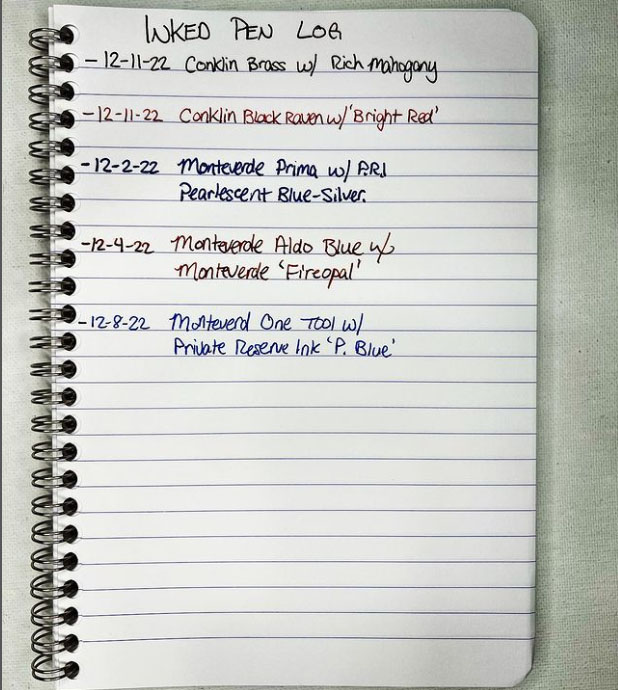 INKED PEN LOG
- 12-11-22 Conklin Brass w/ Rich Mahogany
- 12-11-22 Conklin Black Raven w/ 'Bright Red'
- 12-2-22 Monteverde Prima w/ P.R.I
Pearlescent Blue-Silver.
- 12-4-22 Monteverde Aldo Blue w/
Monteverde 'Fireopal'
- 12-8-22 Monteverd One Tool w/
Private Reserve Ink 'P. Blue'